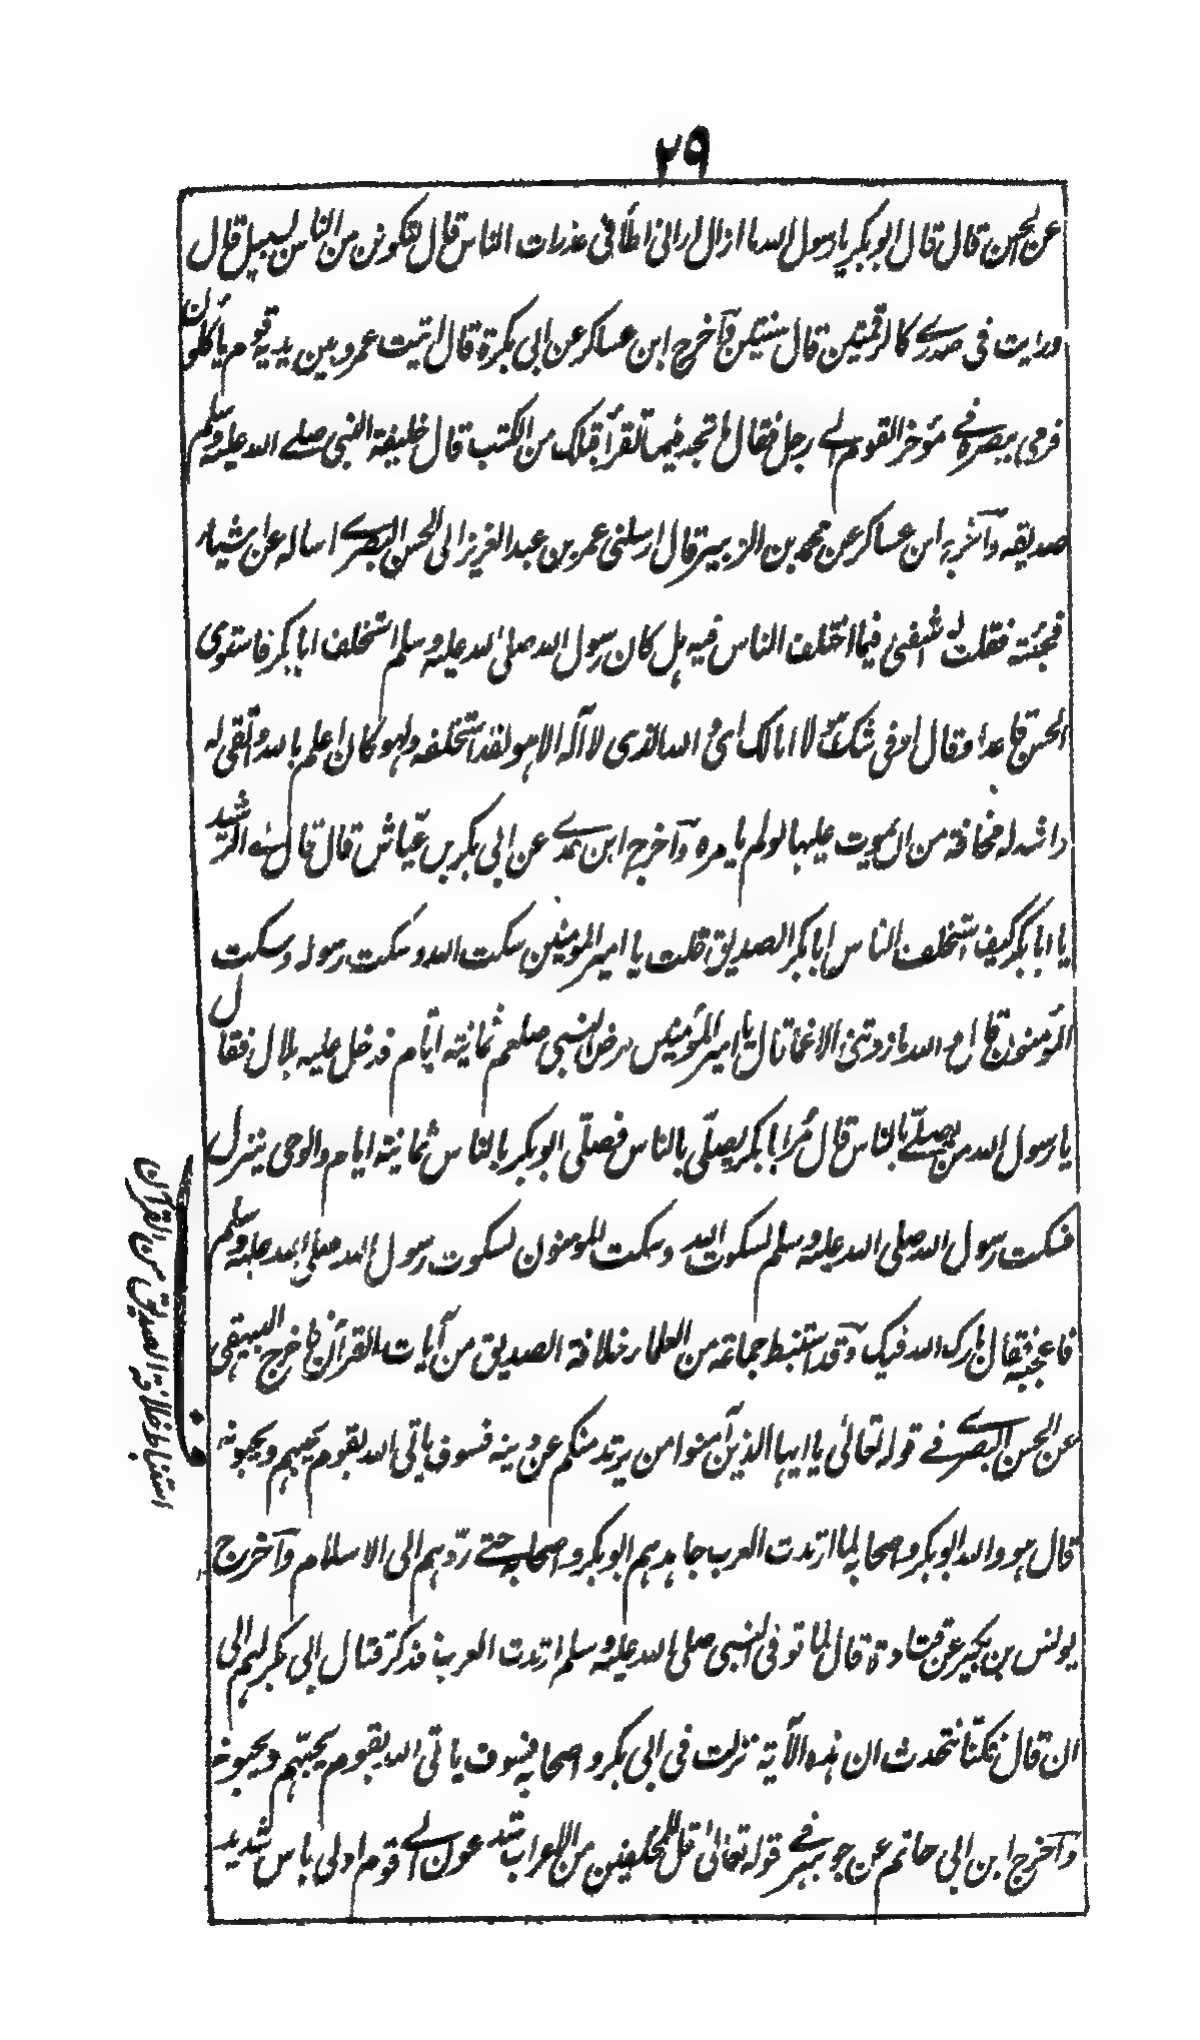 ٢٩
عن الحسن قال قال ابوبكر يا رسول الله ما ازال ارانى اطأ فى عذرات الناس قال لتكونن من الناس بسبيل قال
ورايت فى صدرى كالرقمتين قال سنتين وآخرج ابن عساكر عن ابى بكرة قال اتيت عمر وبين يديه قوم يأكلون
فرمى ببصره فى مؤخر القوم الى رجل فقال ما تجد فيما تقرأ قبلك من الكتب قال خليفة النبى صلى الله عليه وسلم
صديقه وآخرج ابن عساكر عن محمد بن الزبير قال ارسلنى عمر بن عبد العزيز الى الحسن البصرى اساله عن اشياء
فجئته فقلت له اشفنى فيما اختلف الناس فيه هل كان رسول الله صلى الله عليه وسلم استخلف ابا بكر فاستوى
الحسن قاعدا وقال او فى شك هو لا ابا لك اى والله الذى لا اله الا هو لقد استخلفه ولهو كان اعلم بالله واتقى له
واشد له مخافة من ان يموت عليها لو لم يامره وآخرج ابن عدى عن ابى بكر بن عياش قال قال لى الرشيد
يا ابا بكر كيف استخلف الناس ابا بكر الصديق قلت يا امير المومنين سكت الله وسكت رسوله وسكت
المؤمنون قال والله ما زدتنى الا غما قال يا امير المؤمنين مرض النبى صلعم ثمانية ايام فدخل عليه بلال فقال
يا رسول الله من يصلى بالناس قال مر ابا بكر يصلى بالناس فصلى ابو بكر بالناس ثمانية ايام والوحى ينزل
فسكت رسول الله صلى الله عليه وسلم لسكوت الله وسكت المومنون لسكوت رسول الله صلى الله عليه وسلم
فاعجبه فقال بارك الله فيك وقد استنبط جماعة من العلماء خلافة الصديق من آيات القرآن فاخرج البيهقى
عن الحسن البصرى فى قوله تعالى يا ايها الذين آمنوا من يرتد منكم عن دينه فسوف ياتى الله بقوم يحبهم ويحبونه
قال هو والله ابو بكر واصحابه لما ارتدت العرب جاهدهم ابو بكر واصحابه حتى ردهم الى الاسلام وآخرج
يونس بن بكير عن قتادة قال لما توفى النبى صلى الله عليه وسلم ارتدت العرب فذكر قتال ابى بكر لهم الى
ان قال فكنا نتحدث ان هذه الآية نزلت فى ابى بكر واصحابه فسوف ياتى الله بقوم يحبهم ويحبونه
وآخرج ابن ابى حاتم عن جويبر فى قوله تعالى قل للمخلفين من الاعراب ستدعون الى قوم اولى باس شديد
استنباط خلافة الصديق من القرآن